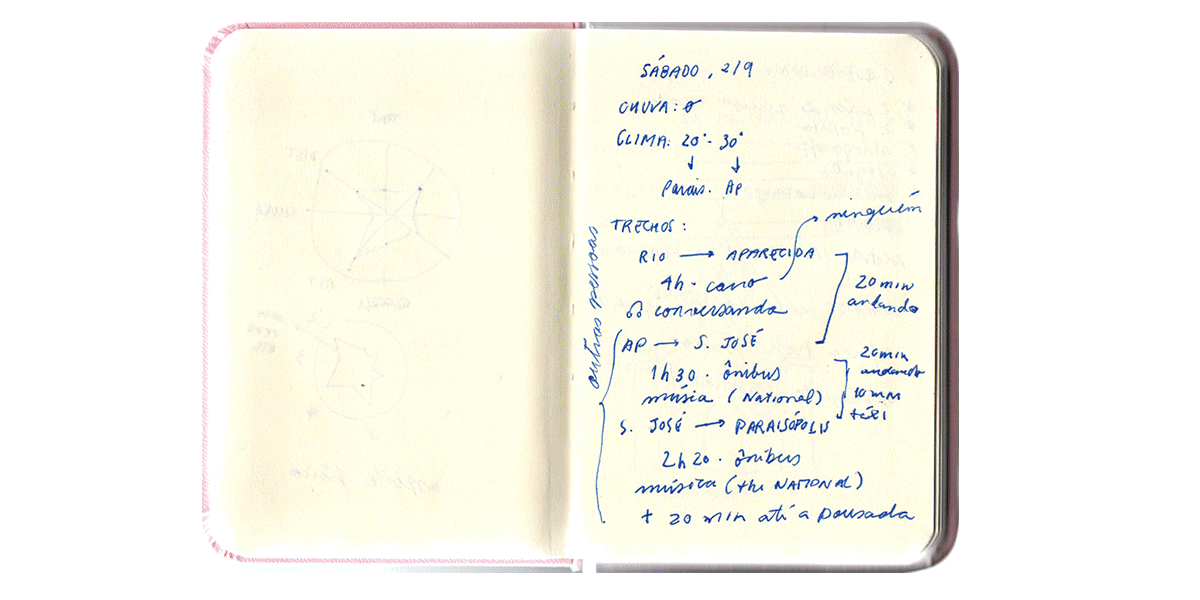 SÁBADO, 2/9
CHUVA: Ø
CLIMA: 20° - 30°
↓ ↓
Parais. AP
TRECHOS:
ninguém
RIO → APARECIDA
4h - carro
conversando
20 min
andando
outras pessoas
AP → S. JOSÉ
1h30 . ônibus
músia (National)
20 min
andando
10 min
táxi
S. JOSÉ → PARAISÓPOLIS
2h20 . ônibus
música (the NATIONAL)
+ 20 min até a pousada